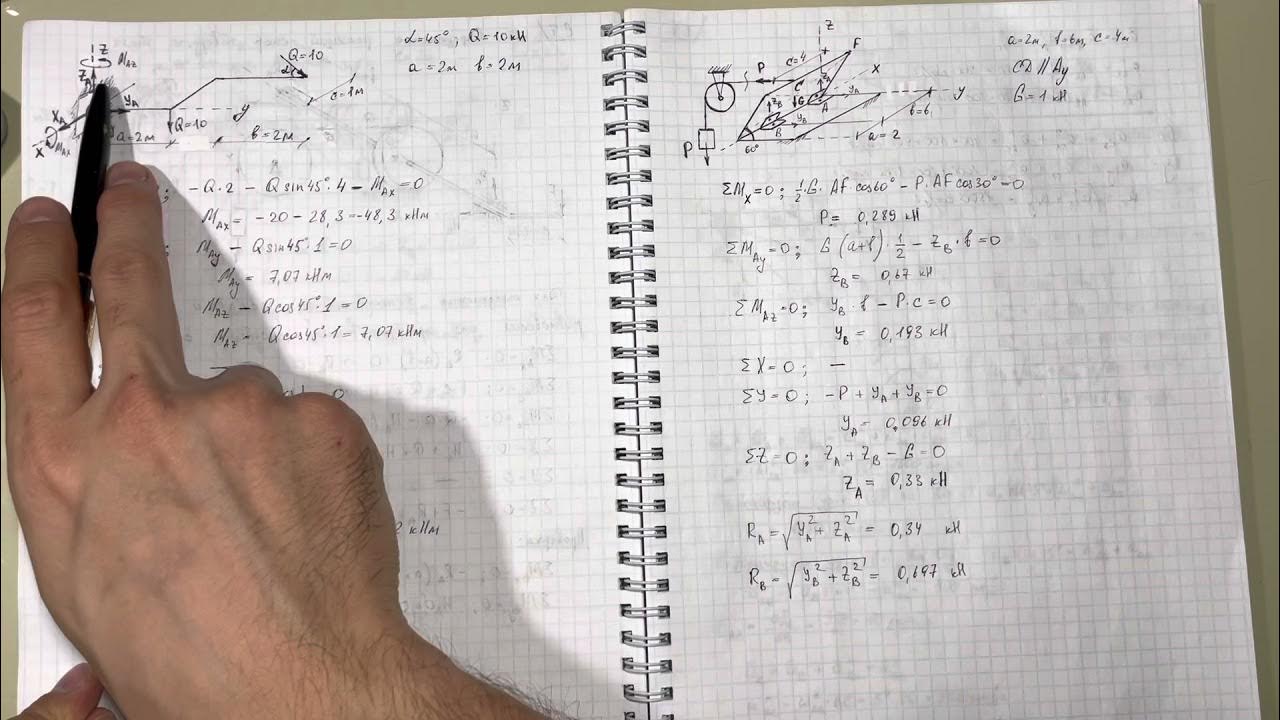 α=45°, Q=10кН
a=2м b=2м
Z
M_AZ
Z_A
Y_A
X_A
X
M_AX
a=2м
Q=10
b=2м
y
Q=10
α
c=1м
; -Q·2 - Q sin45°·4 - M_AX=0
M_AX= -20-28,3=-48,3 кНм
; M_Ay - Q sin45°·1=0
M_Ay= 7,07кНм
M_AZ - Q cos45°·1=0
M_AZ= Q cos45°·1=7,07 кНм
кНм
a=2м, b=6м, c=4м
CD || Ay
G=1 кН
Z
F
c=4
X
P
C
Z_A
y_A
y
Z_B
G
A
y_B
B
b=6
a=2
60°
P
ΣM_X=0; ½·G·AF cos60° - P·AF cos30°=0
P= 0,289 кН
ΣM_Ay=0; G(a+b)·½ - Z_B·b=0
Z_B= 0,67 кН
ΣM_AZ=0; y_B·b - P·c=0
y_B= 0,193 кН
ΣX=0; —
ΣY=0; -P+y_A+y_B=0
y_A= 0,096 кН
ΣZ=0; Z_A+Z_B-G=0
Z_A= 0,33 кН
R_A=√(y_A²+Z_A²)= 0,34 кН
R_B=√(y_B²+Z_B²)= 0,697 кН